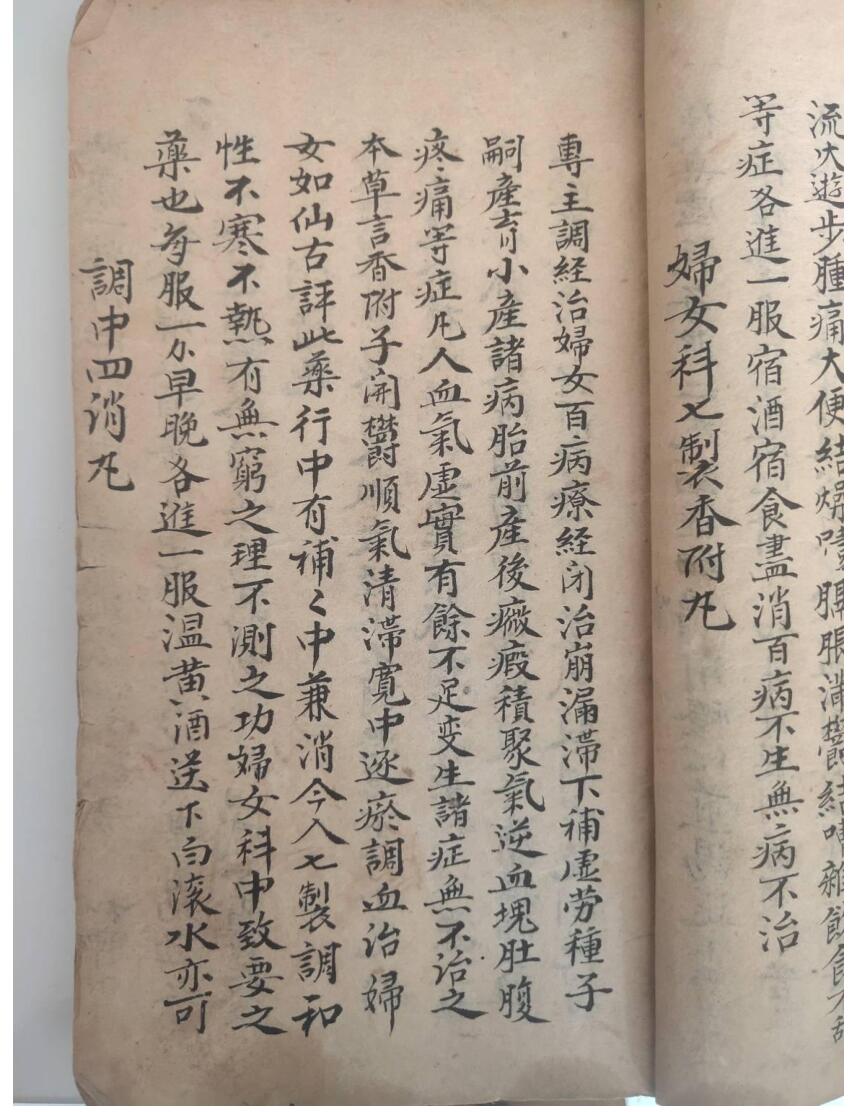 流火遊步腫痛大便結燥噎膈脹滿鬱結嘈雜飲食不
等症各進一服宿酒宿食盡消百病不生無病不治
婦女科七製香附丸
專主調経治婦女百病療経闭治崩漏滞下補虛劳種子
嗣產育小產諸病胎前產後癥瘕積聚氣逆血塊肚腹
疼痛等症凡人血氣虛實有餘不足变生諸症無不治之
本草言香附子開鬱順氣清滞寬中逐瘀調血治婦
女如仙古評此藥行中有補〻中兼消今入七製調和
性不寒不熱有無窮之理不測之功婦女科中致要之
藥也每服一分早晚各進一服温黄酒送下白滚水亦可
調中四消丸